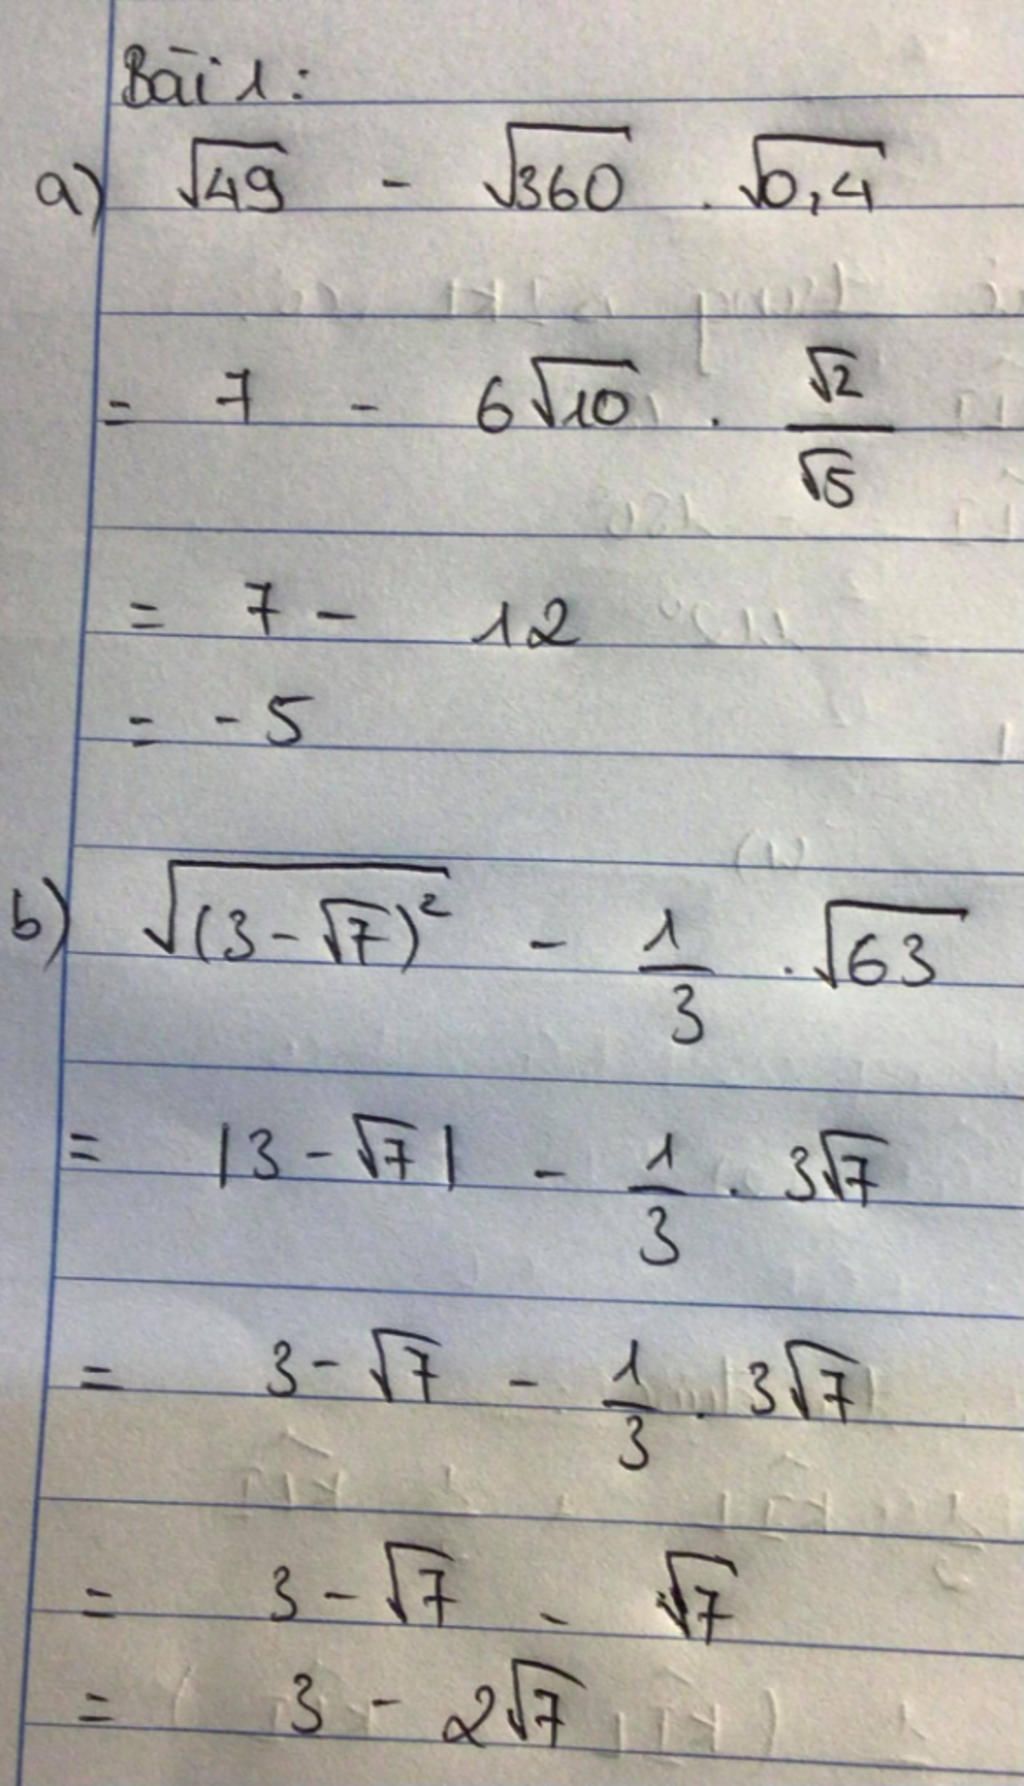 Bài 1:
a) √49 - √360 . √0,4
= 7 - 6√10 . √2/√5
= 7 - 12
= -5
b) √(3-√7)² - 1/3 . √63
= |3-√7| - 1/3 . 3√7
= 3-√7 - 1/3 . 3√7
= 3-√7 - √7
= 3 - 2√7